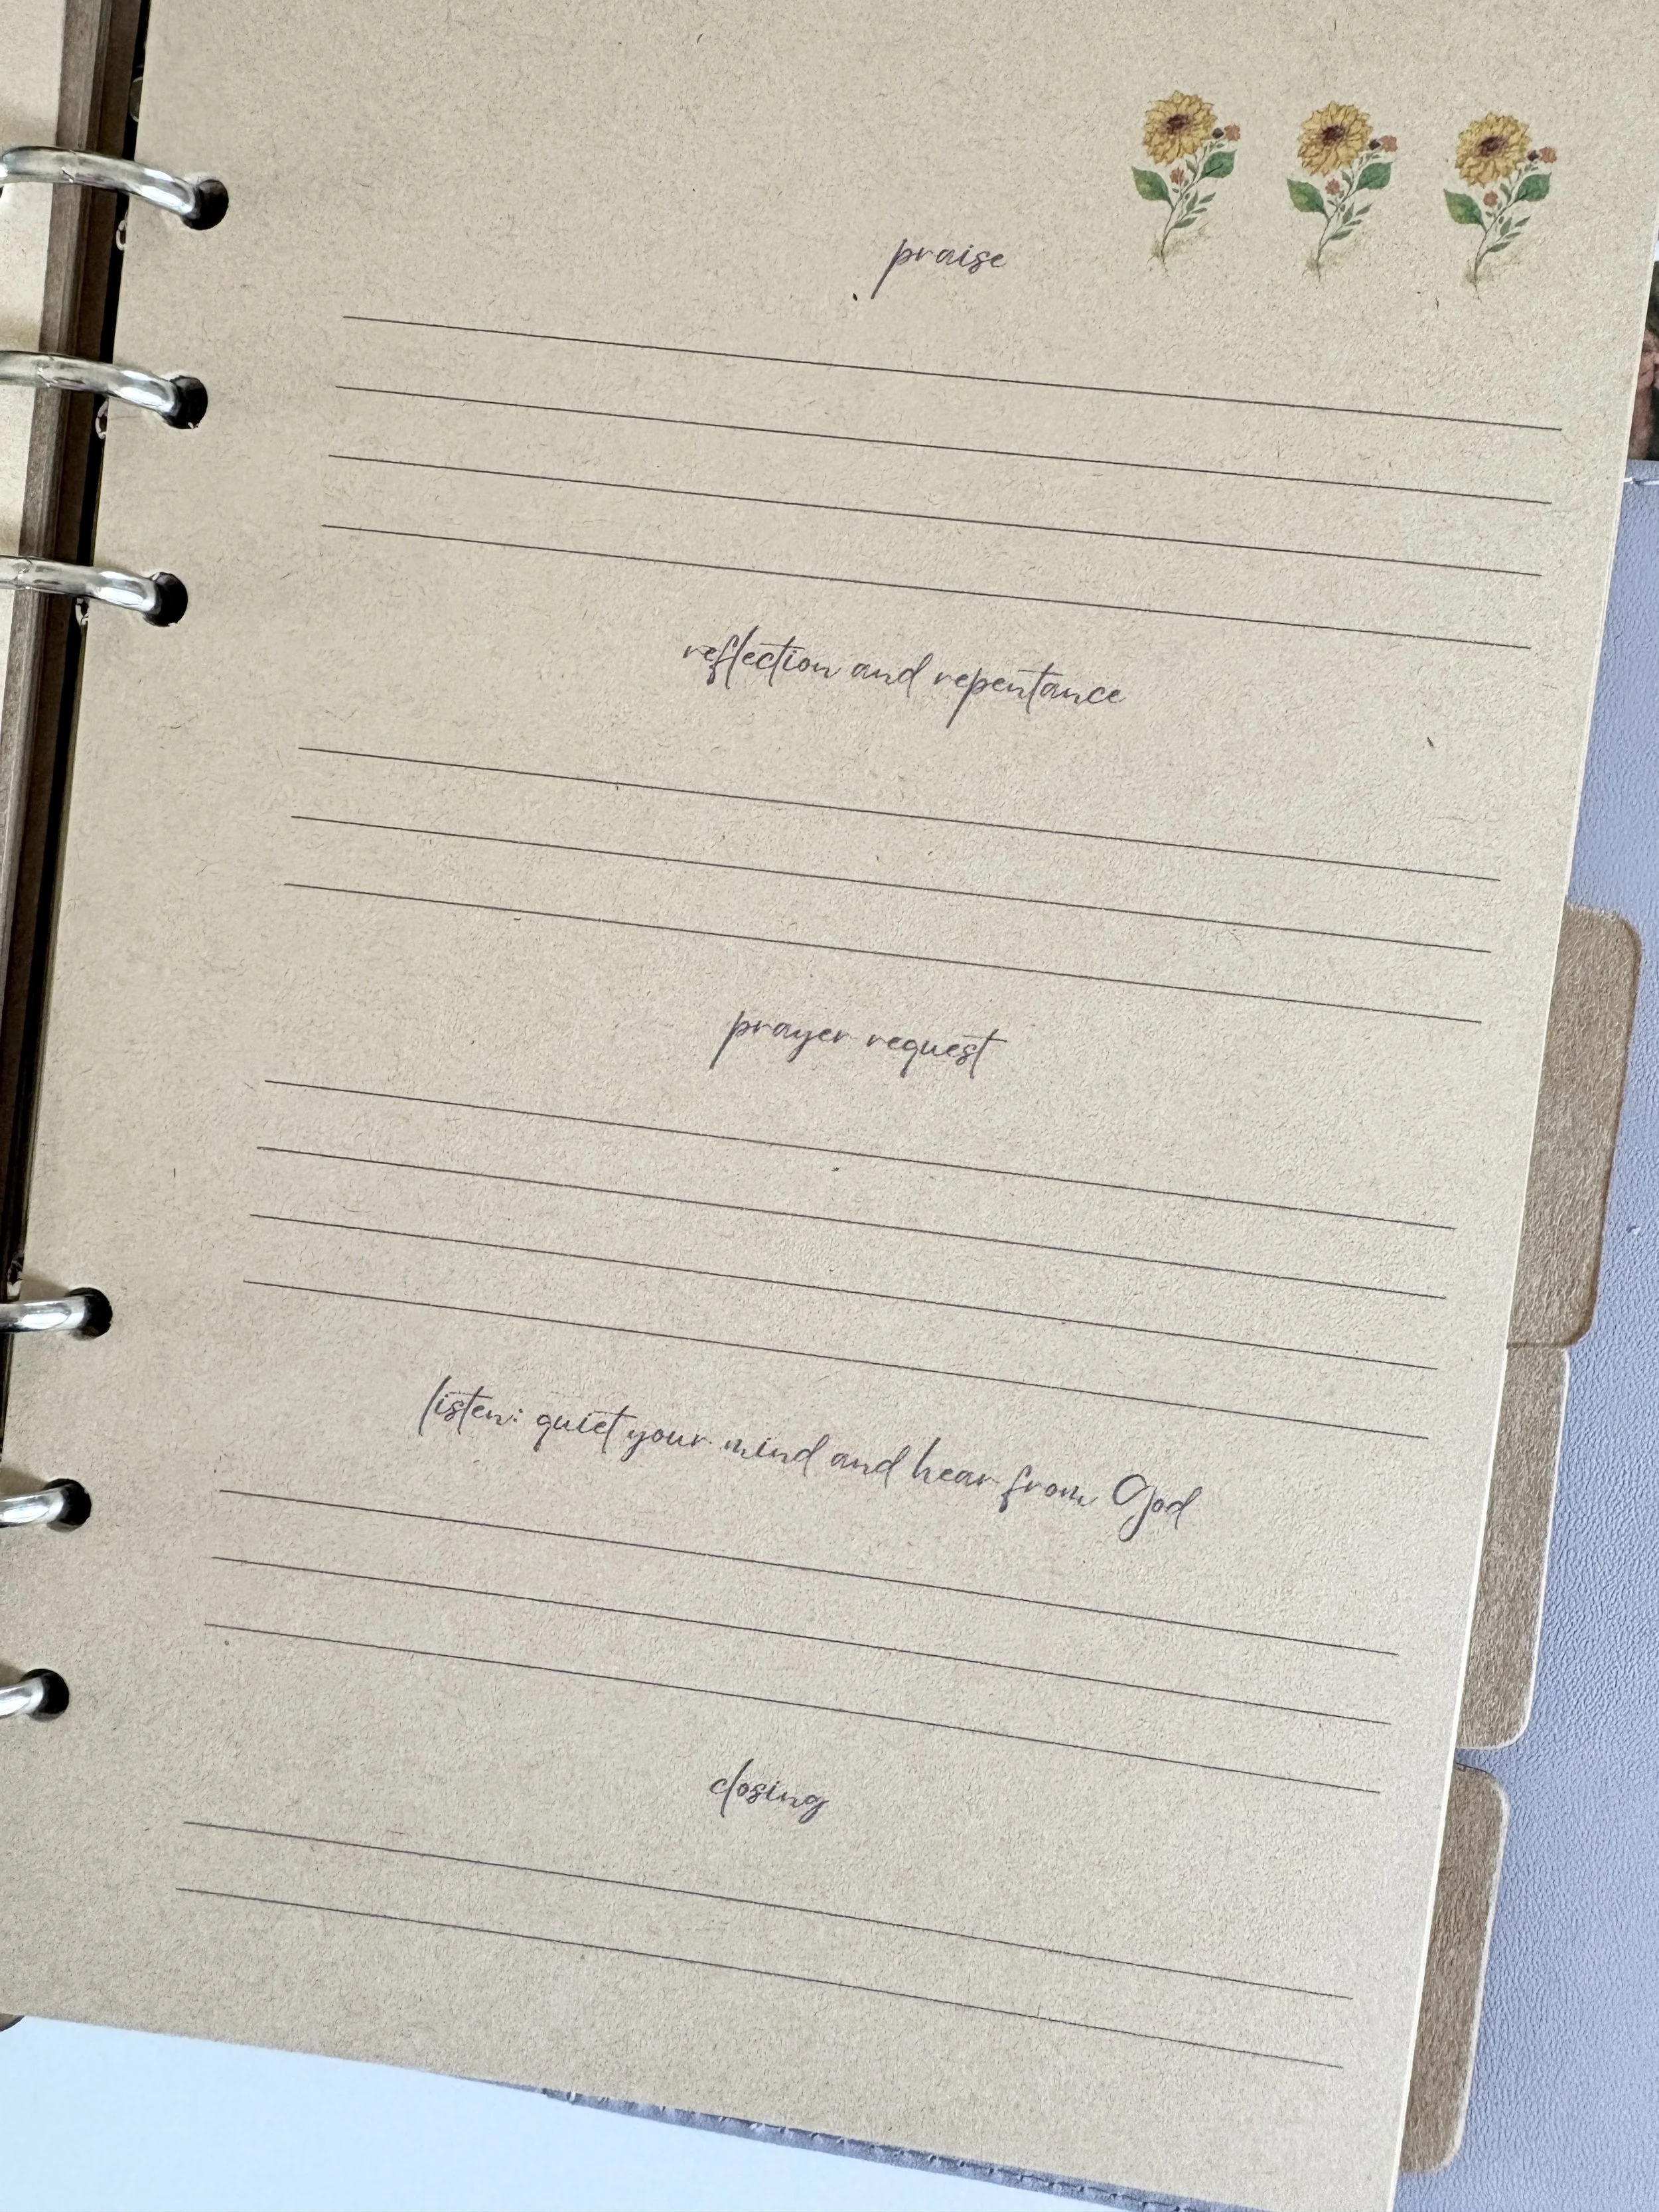 praise
reflection and repentance
prayer request
listen: quiet your mind and hear from God
closing